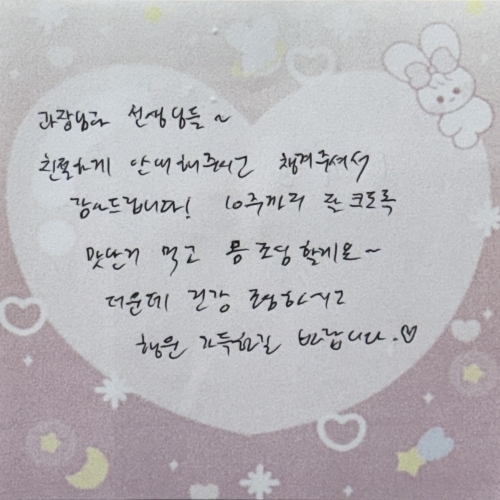 과장님과 선생님들 ~
친절하게 안내해주시고 챙겨주셔서
감사드립니다! 10주까지 잘 크도록
맛난거 먹고 몸 조심할게요~
더운데 건강 조심하시고
행운 가득하길 바랍니다.♡